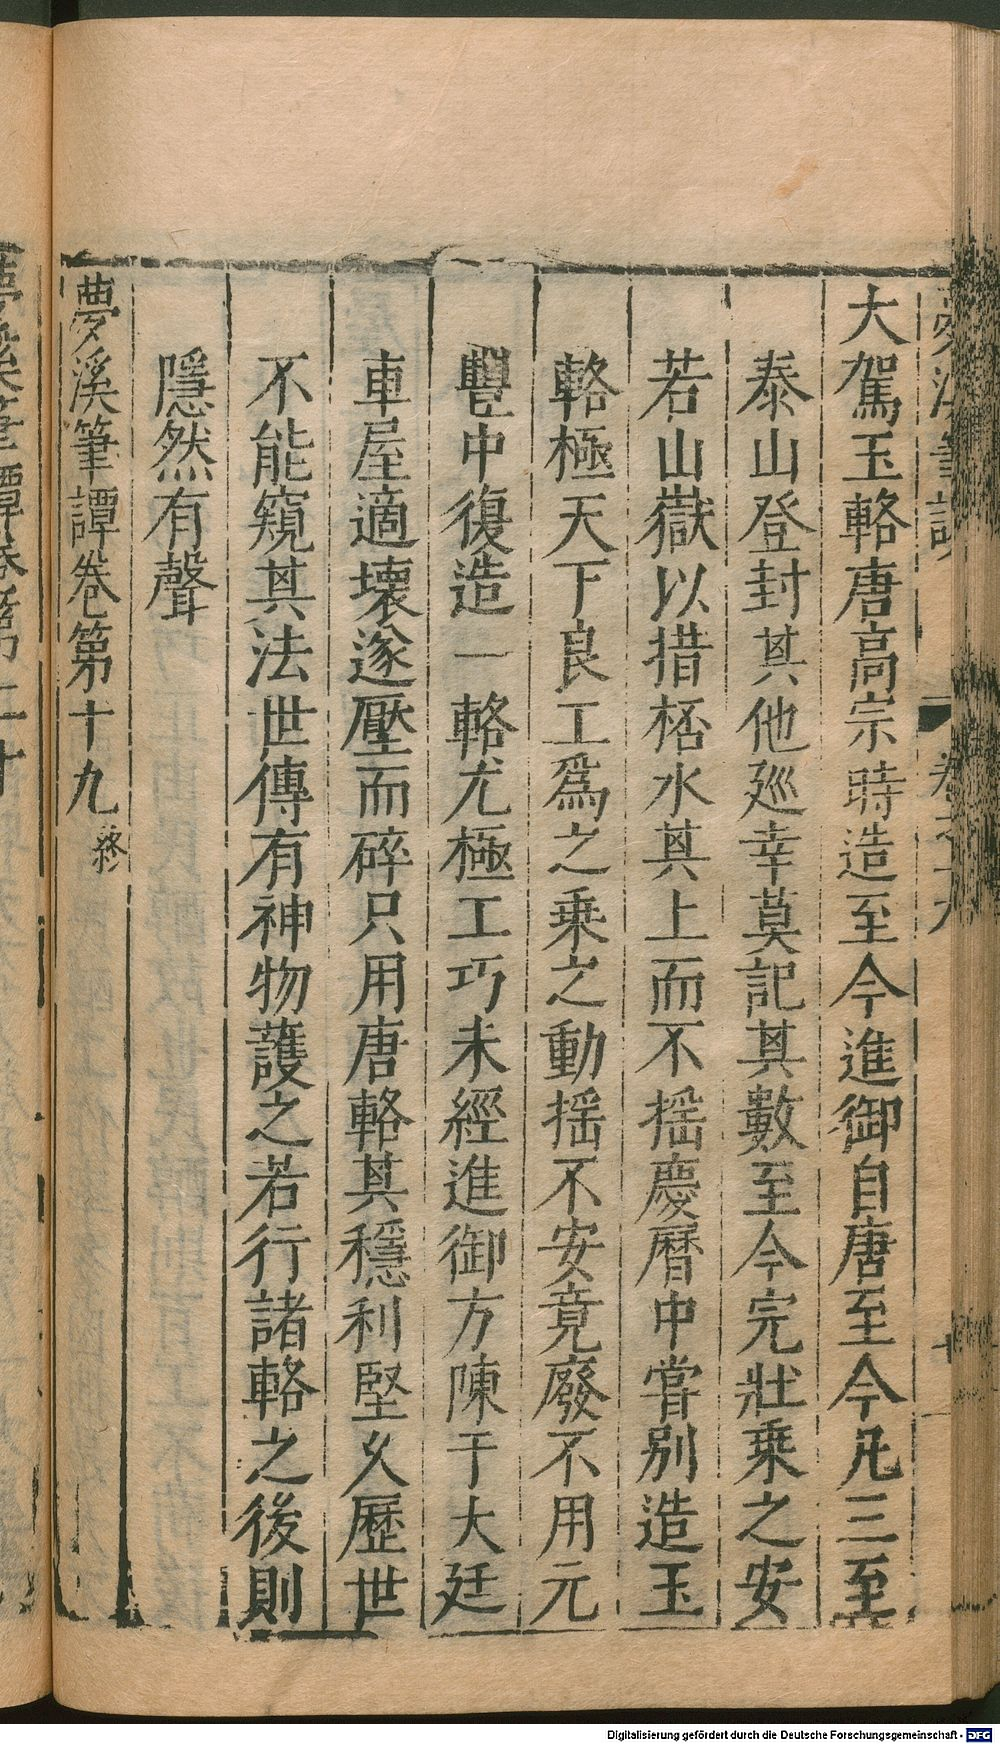 大駕玉輅唐高宗時造至今進御自唐至今凡三至
泰山登封其他廵幸莫記其數至今完壯乗之安
若山嶽以措桮水其上而不揺慶曆中嘗别造玉
輅極天下良工爲之乗之動揺不安竟廢不用元
豐中復造一輅尤極工巧未經進御方陳于大廷
車屋適壞遂壓而碎只用唐輅其穩利堅久歷世
不能窺其法世傳有神物護之若行諸輅之後則
隱然有聲
夢溪筆譚卷第十九終
Digitalisierung gefördert durch die Deutsche Forschungsgemeinschaft - DFG